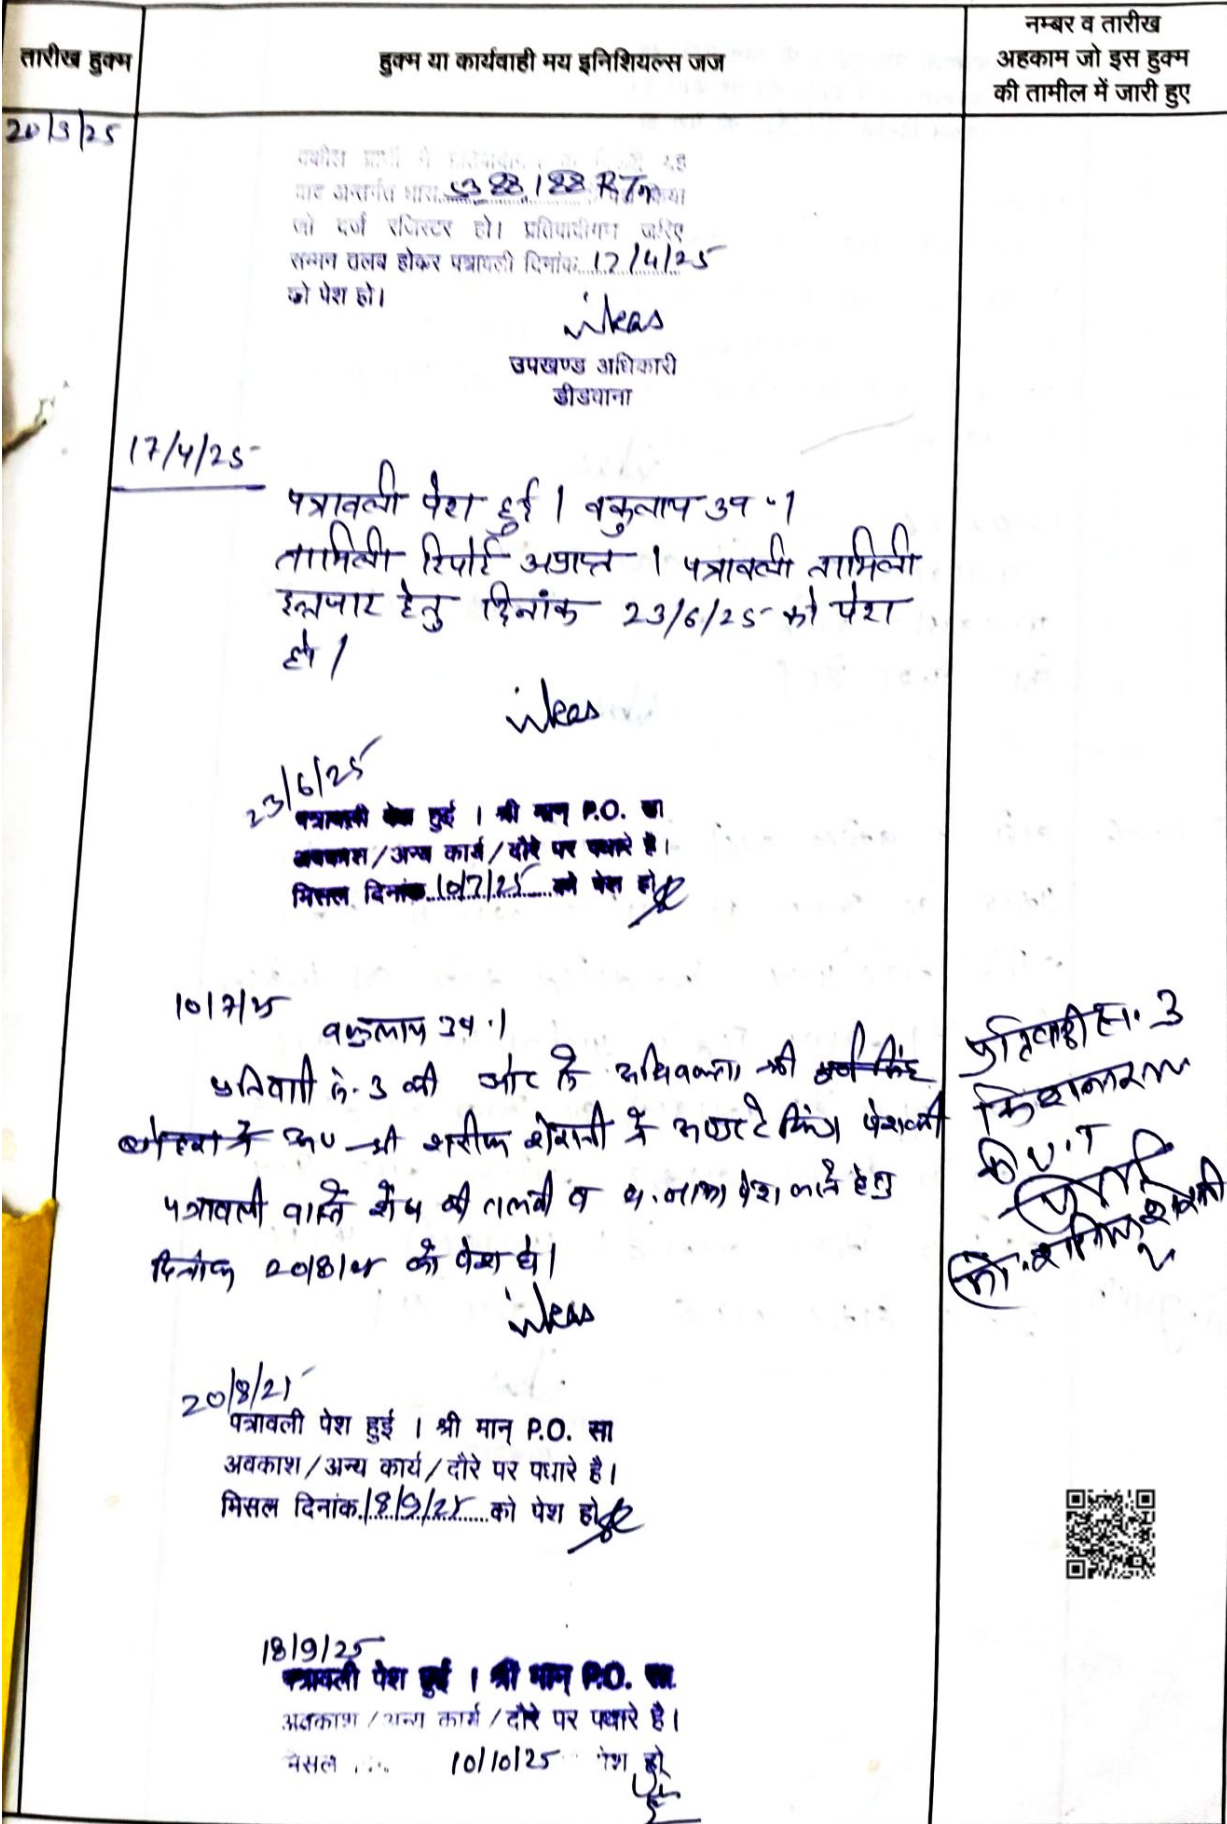 तारीख हुक्म
हुक्म या कार्यवाही मय इनिशियल्स जज
नम्बर व तारीख
अहकाम जो इस हुक्म
की तामील में जारी हुए
20/3/25
वकील प्रार्थी ने
वाद अन्तर्गत धारा 88, 188 R.T.
जो दर्ज रजिस्टर हो। प्रतिवादीगण जरिए
सम्मन तलब होकर पत्रावली दिनांक 17/4/25
को पेश हो।
उपखण्ड अधिकारी
डीडवाना
17/4/25
पत्रावली पेश हुई। वकुलाय उप.।
तामिली रिपोर्ट अप्राप्त। पत्रावली तामिली
इन्तजार हेतु दिनांक 23/6/25 को पेश
हो।
23/6/25
पत्रावली पेश हुई । श्री मान् P.O. सा
अवकाश/अन्य कार्य/दौरे पर पधारे है।
मिसल दिनांक 10/7/25 को पेश हो
10/7/25
वकुलाय उप.।
प्रतिवादी सं. 3 की ओर से अधिवक्ता श्री
श्री शरीफ
पत्रावली वास्ते शेष की तलबी व ज. दावा पेश करने हेतु
दिनांक 20/8/25 को पेश हो।
प्रतिवादी सं. 3
U.T
20/8/25
पत्रावली पेश हुई । श्री मान् P.O. सा
अवकाश/अन्य कार्य/दौरे पर पधारे है।
मिसल दिनांक 18/9/25 को पेश हो
18/9/25
पत्रावली पेश हुई । श्री मान् P.O. सा
अवकाश/अन्य कार्य/दौरे पर पधारे है।
मिसल 10/10/25 पेश हो